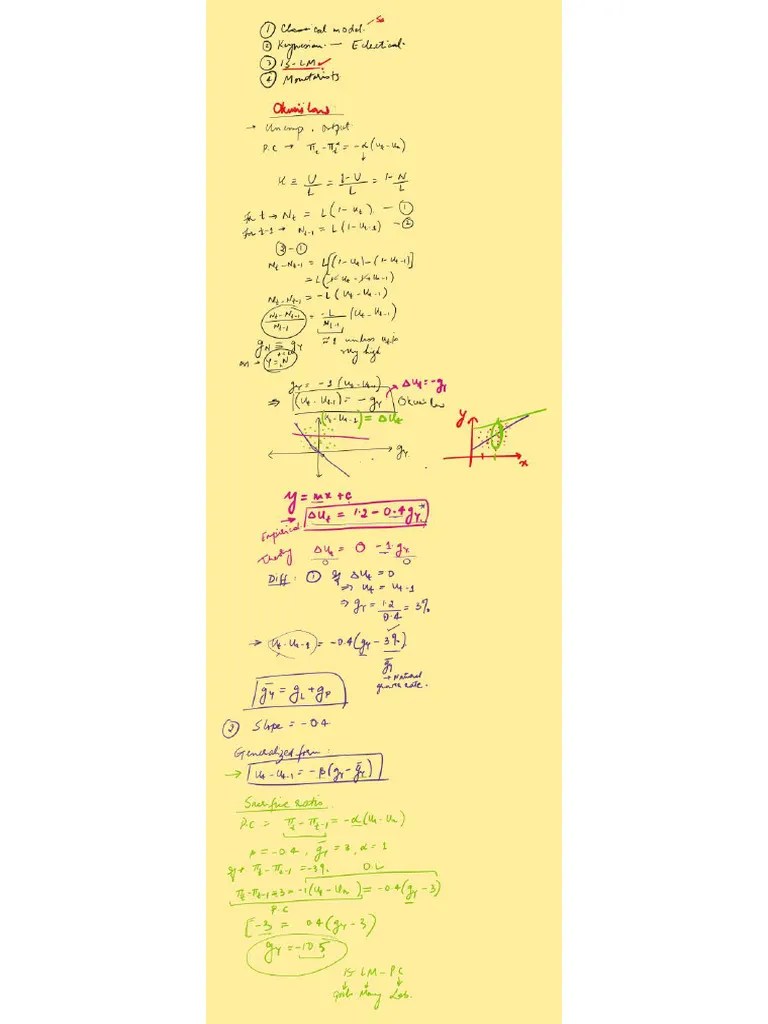 ① Classical model
② Keynesian — Eclectical
③ IS-LM ✓
④ Monetarists
Okun's Law
→ Unemp, output
P.C → π_t - π_t^e = -α(u_t - u_n)
u ≡ U/L = L-U/L = 1-N/L
for t → N_t = L(1-u_t) — ①
for t-1 → N_t-1 = L(1-u_t-1) — ②
②-①
N_t - N_t-1 = L[(1-u_t)-(1-u_t-1)]
= L(1-u_t-1+u_t-1)
N_t - N_t-1 = -L(u_t - u_t-1)
N_t - N_t-1/N_t-1 = -L/N_t-1 (u_t - u_t-1)
≈ 1 unless u_t is very high
g_N ≡ g_Y
as → Y = N
g_Y = -1(u_t - u_t-1)
→ Δu_t = -g_Y
⇒ (u_t - u_t-1) = -g_Y Okun's Law
(u_t - u_t-1) = Δu_t
g_Y
y
x
y = mx + c
Empirical → Δu_t = 1.2 - 0.4 g_Y
Theory Δu_t = 0 - 1.g_Y
Diff: ① if Δu_t = 0
⇒ u_t = u_t-1
⇒ g_Y = 1.2/0.4 = 3%
→ u_t - u_t-1 = -0.4(g_Y - 3%)
ḡ_Y
→ Natural
growth rate.
ḡ_Y = g_L + g_P
② Slope = -0.4
Generalized form:
→ u_t - u_t-1 = -β(g_Y - ḡ_Y)
Sacrifice ratio
P.C = π_t - π_t-1 = -α(u_t - u_n)
β = -0.4, ḡ_Y = 3, α = 1
if π_t - π_t-1 = -3% O.L
π_t - π_t-1 = 3 = -1(u_t - u_n) = -0.4(g_Y - 3)
P.C
[-3 = 0.4(g_Y - 3)
g_Y = -10.5
IS LM - PC
↓ ↓ ↓
Lab.